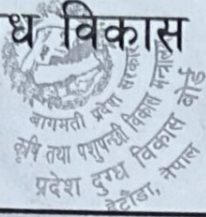 ध विकास
बागमती प्रदेश सरकार
कृषि तथा पशुपन्छी विकास मन्त्रालय
प्रदेश दुग्ध विकास बोर्ड
हेटौंडा, नेपाल